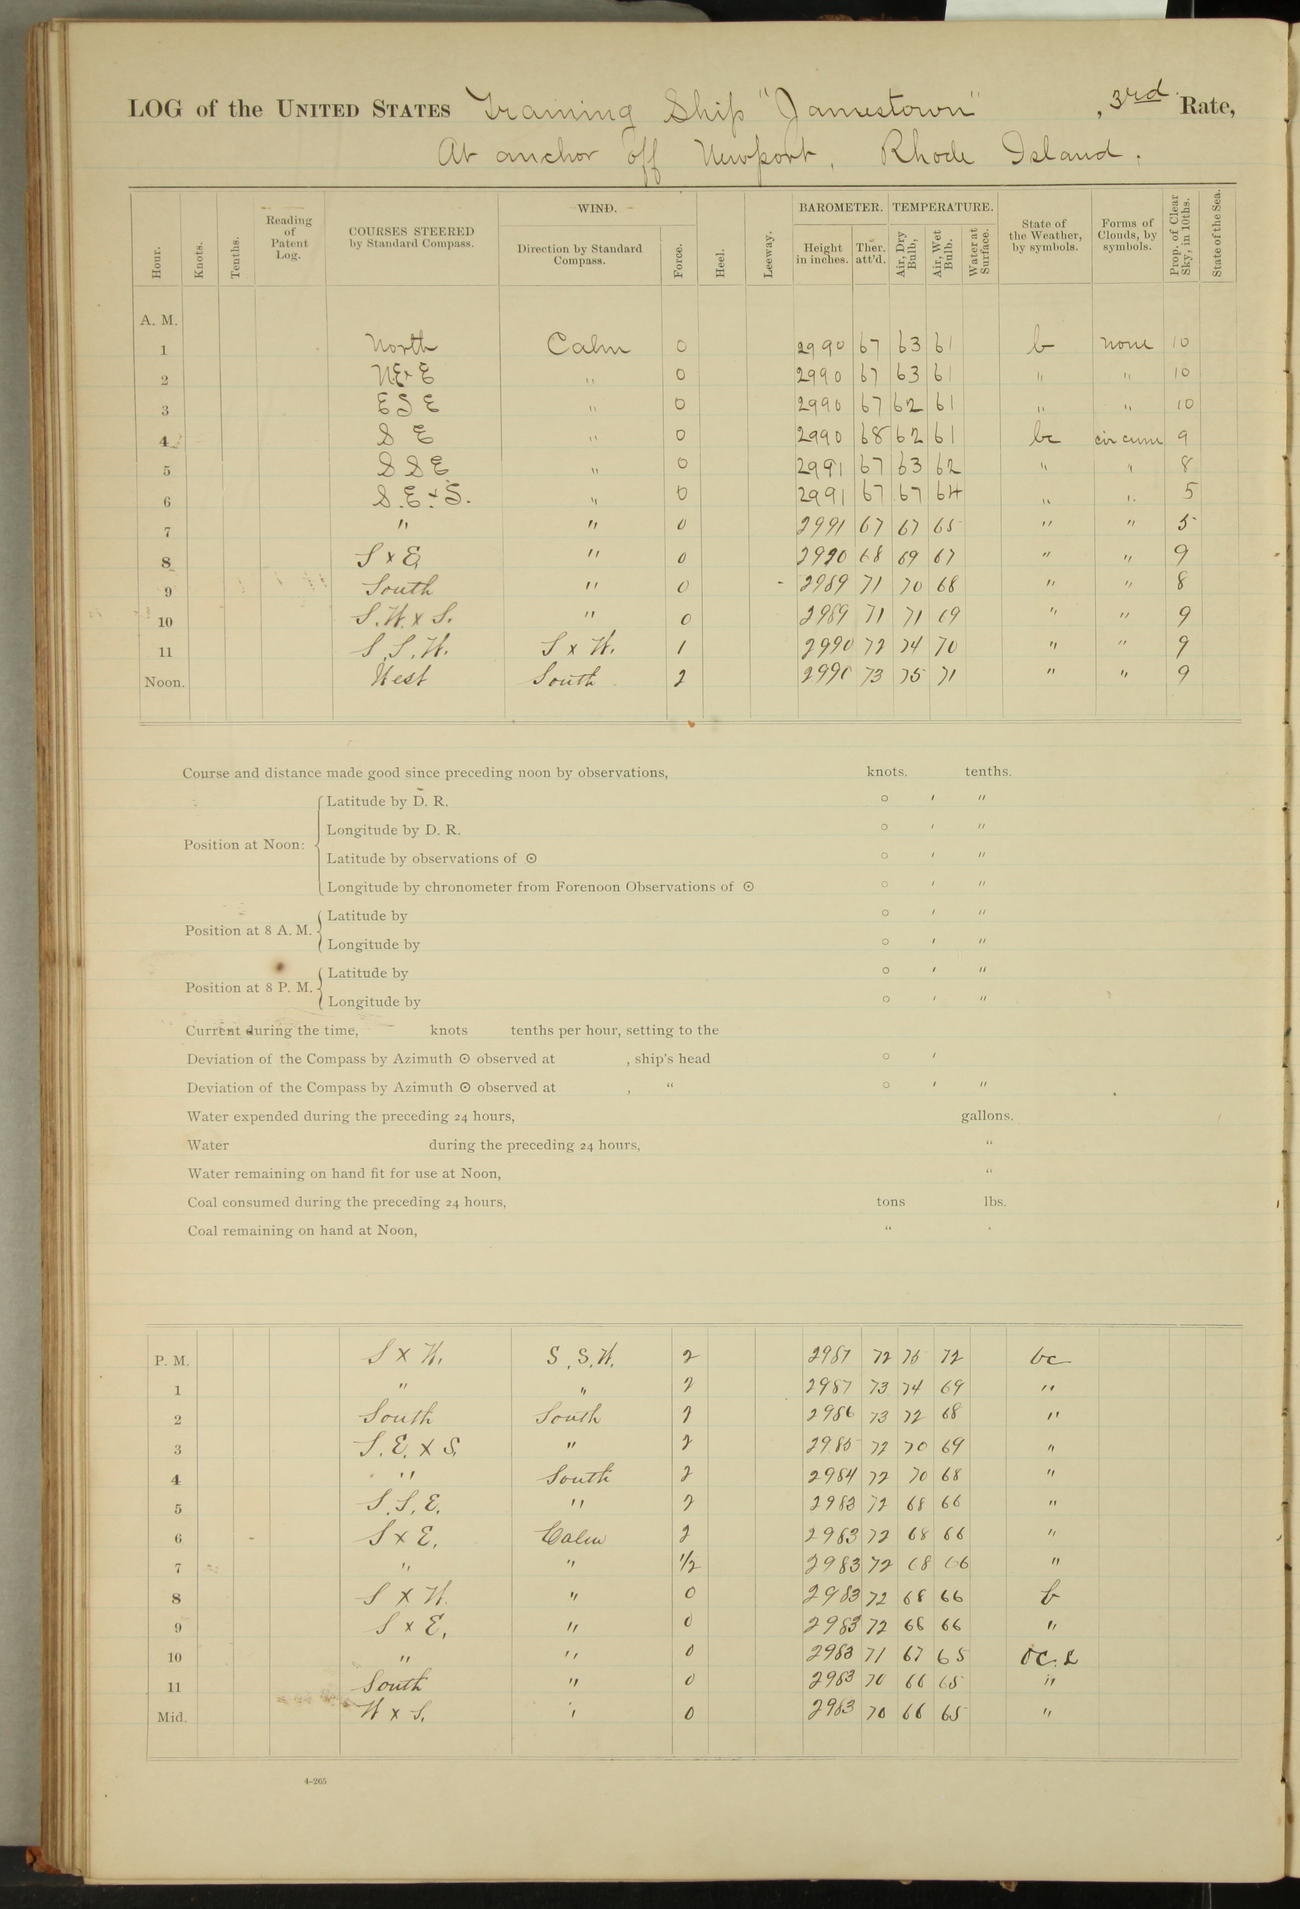 LOG of the UNITED STATES Training Ship "Jamestown", 3rd Rate,
At anchor off Newport, Rhode Island.
Hour. Knots. Tenths. Reading of Patent Log. COURSES STEERED by Standard Compass. WIND. Direction by Standard Compass. Force. Heel. Leeway. BAROMETER. Height in inches. Ther. att'd. TEMPERATURE. Air, Dry Bulb, Air, Wet Bulb. Water at Surface. State of the Weather, by symbols. Forms of Clouds, by symbols. Prop. of Clear Sky, in 10ths. State of the Sea.
A. M.
1 North Calm 0 2990 67 63 61 b none 10
2 NExE " 0 2990 67 63 61 " " 10
3 ESE " 0 2990 67 62 61 " " 10
4 SE " 0 2990 68 62 61 bc cir cum 9
5 SSE " 0 2991 67 63 62 " " 8
6 S.E.xS. " 0 2991 67 67 64 " " 5
7 " " 0 2991 67 67 65 " " 5
8 SxE " 0 2990 68 69 67 " " 9
9 South " 0 2989 71 70 68 " " 8
10 S.W.xS. " 0 2989 71 71 69 " " 9
11 S.S.W. SxW. 1 2990 72 74 70 " " 9
Noon. West South 2 2990 73 75 71 " " 9
Course and distance made good since preceding noon by observations, knots. tenths.
Position at Noon: Latitude by D. R. ° ′ ″
Longitude by D. R. ° ′ ″
Latitude by observations of ☉ ° ′ ″
Longitude by chronometer from Forenoon Observations of ☉ ° ′ ″
Position at 8 A. M. Latitude by ° ′ ″
Longitude by ° ′ ″
Position at 8 P. M. Latitude by ° ′ ″
Longitude by ° ′ ″
Current during the time, knots tenths per hour, setting to the
Deviation of the Compass by Azimuth ☉ observed at , ship's head ° ′
Deviation of the Compass by Azimuth ☉ observed at , " ° ′ ″
Water expended during the preceding 24 hours, gallons.
Water during the preceding 24 hours, "
Water remaining on hand fit for use at Noon, "
Coal consumed during the preceding 24 hours, tons lbs.
Coal remaining on hand at Noon, "
P. M. SxW. S.S.W. 2 2987 72 72 bc
1 " " 2 2987 73 74 69 "
2 South South 2 2986 73 72 68 "
3 S.E.xS. " 2 2985 72 70 69 "
4 " South 2 2984 72 70 68 "
5 S.S.E. " 2 2983 72 68 66 "
6 SxE. Calm 2 2983 72 68 66 "
7 " " 1/2 2983 72 68 66 "
8 SxW. " 0 2983 72 68 66 b
9 SxE. " 0 2983 72 66 66 "
10 " " 0 2983 71 67 65
11 South " 0 2983 70 66 65 "
Mid. WxS. " 0 2983 70 66 65 "
4-265